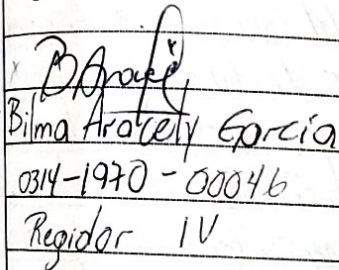 Bilma Aracely Garcia
0314-1970-00046
Regidor IV